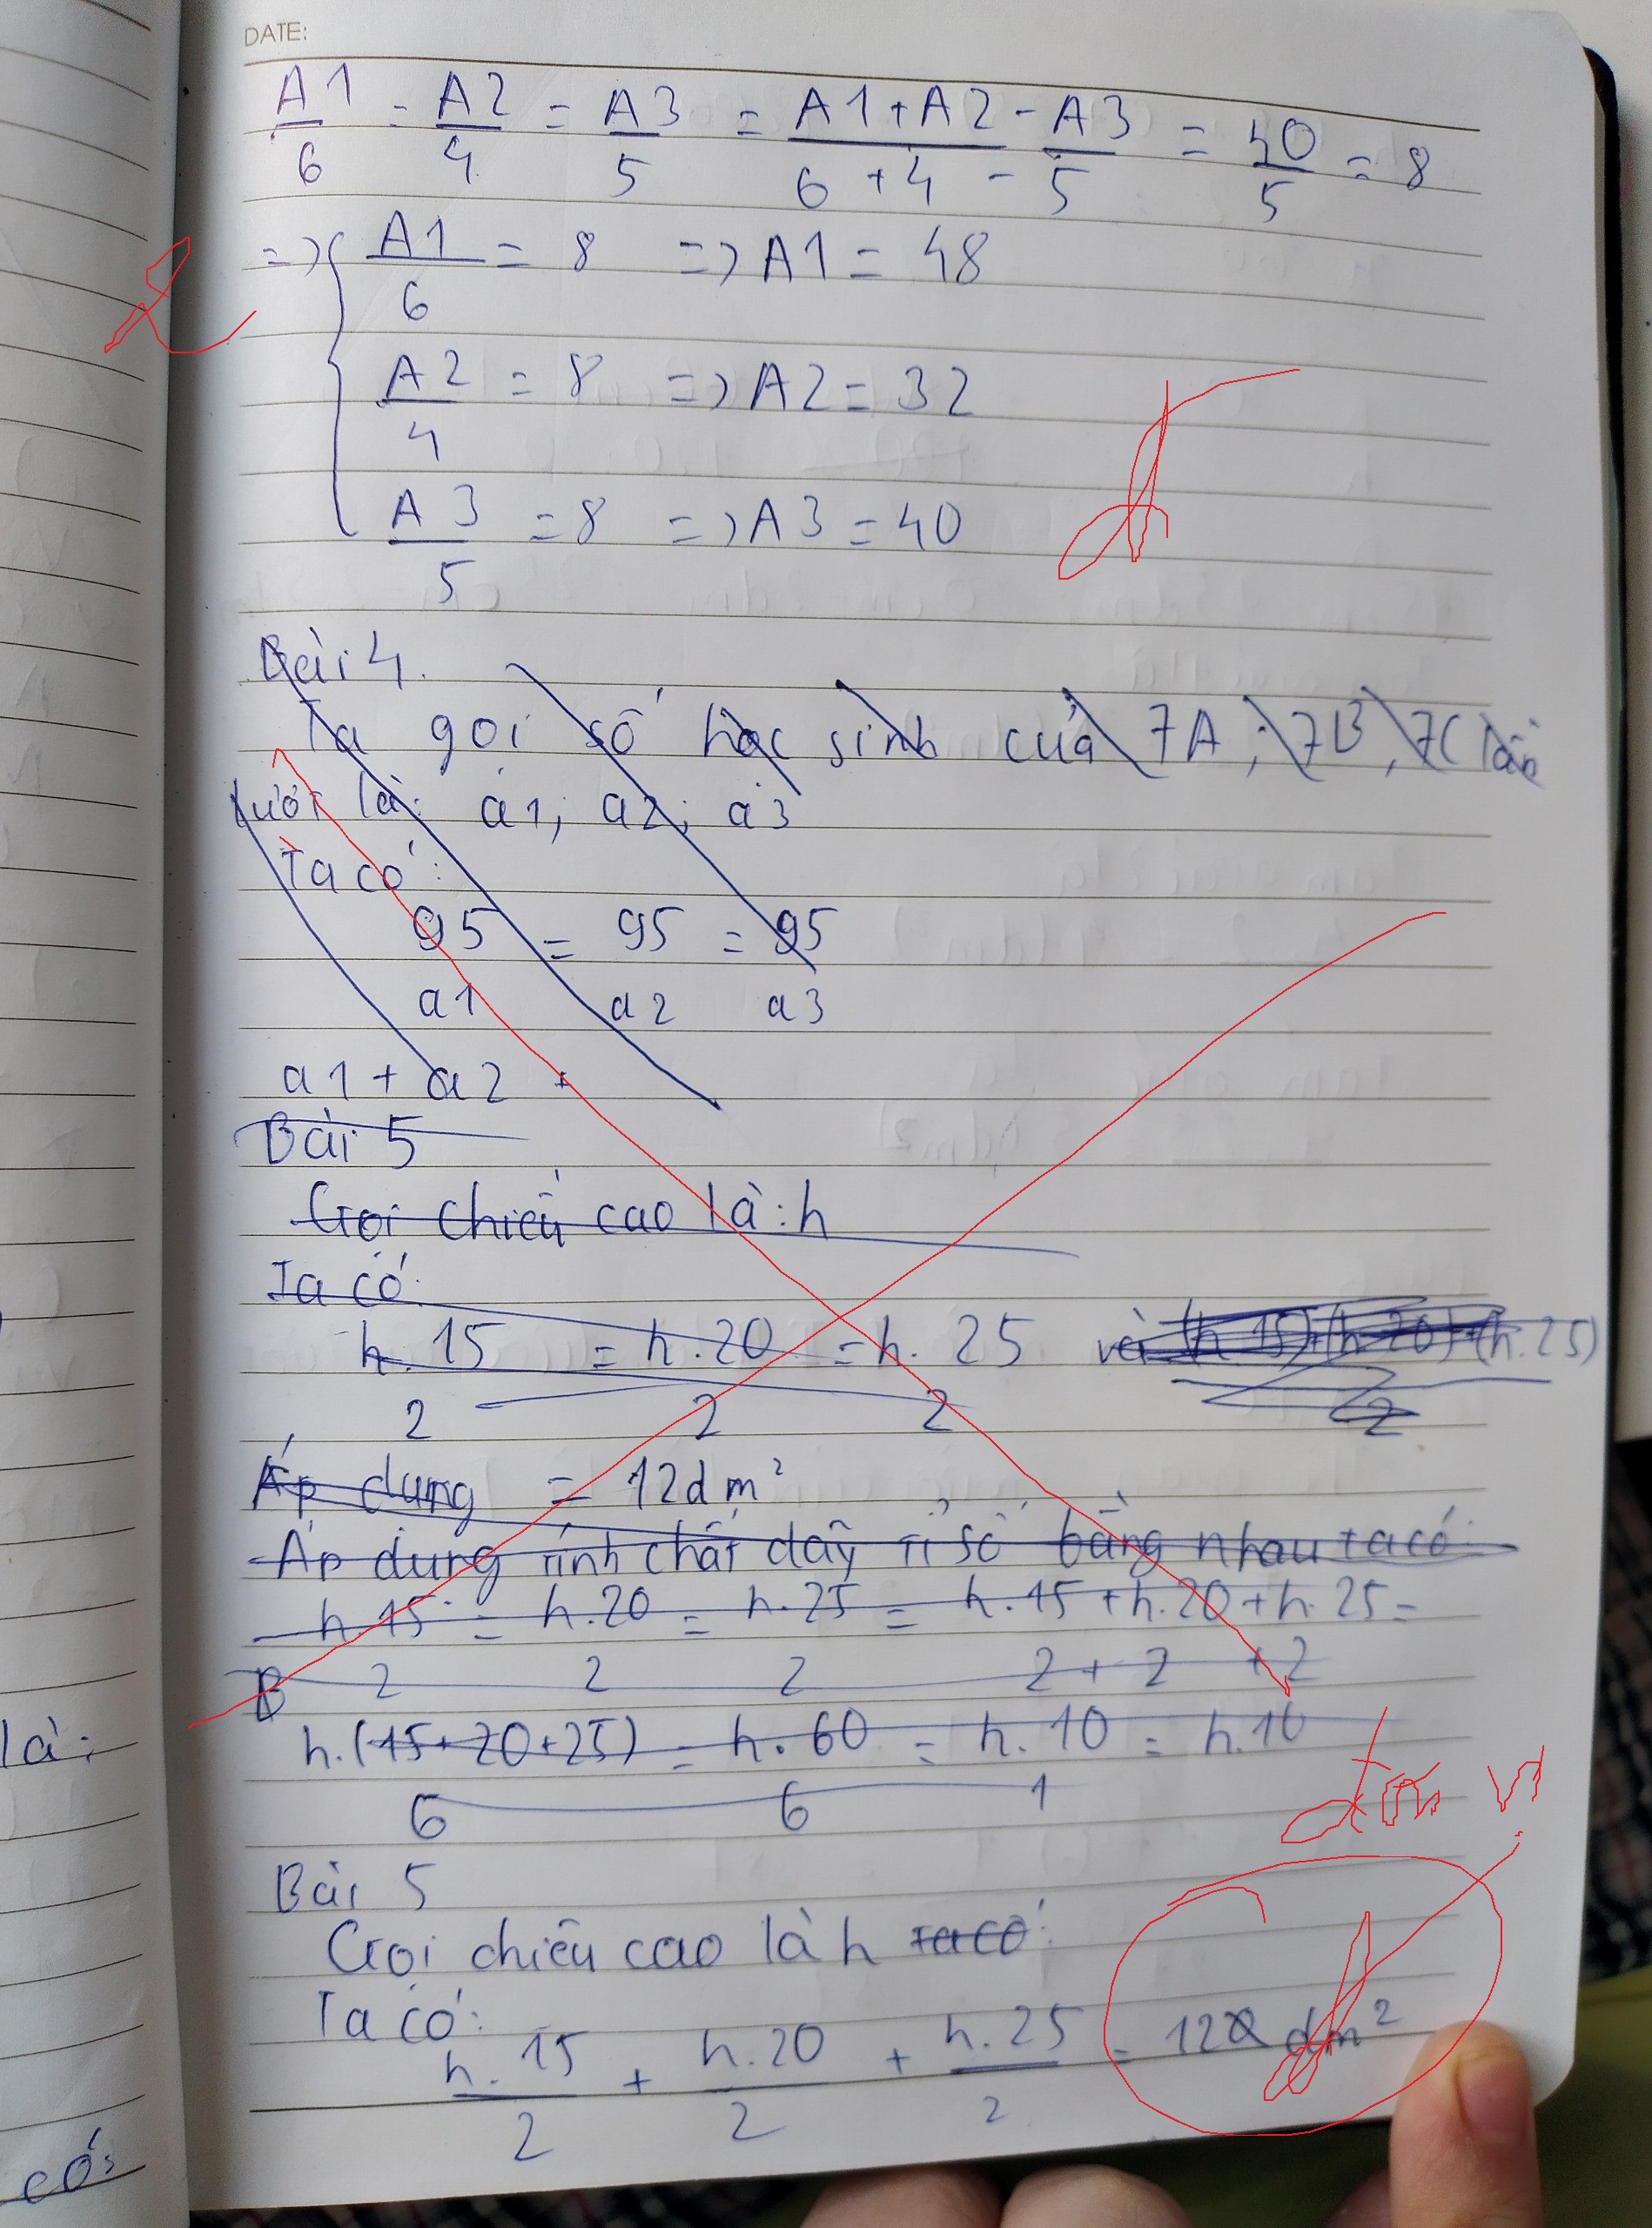 DATE:
A1/6 = A2/4 = A3/5 = A1+A2-A3/6+4-5 = 40/5 = 8
=> { A1/6 = 8 => A1 = 48
A2/4 = 8 => A2 = 32
A3/5 = 8 => A3 = 40
Bài 4.
Ta gọi số học sinh của 7A; 7B, 7C lần
lượt là: a1; a2; a3
Ta có:
95/a1 = 95/a2 = 95/a3
a1 + a2 +
Bài 5
Gọi chiều cao là: h
Ta có:
h.15/2 = h.20/2 = h.25/2 và (h.15)+(h.20)+(h.25)/2
Áp dụng = 12dm²
Áp dụng tính chất dãy tỉ số bằng nhau ta có:
h.15/2 = h.20/2 = h.25/2 = h.15+h.20+h.25/2+2+2 =
B
h.(15+20+25)/6 = h.60/6 = h.10/1 = h.10
đơn vị
Bài 5
Gọi chiều cao là h ta có:
Ta có:
h.15/2 + h.20/2 + h.25/2 = 120 dm²
là:
có: